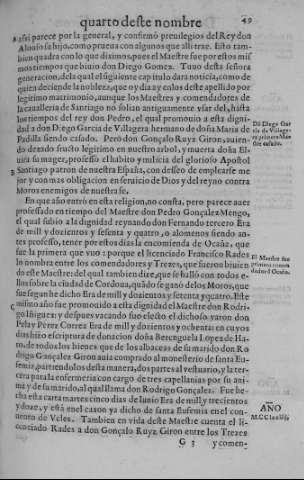 quarto deste nombre 49
assi parece por la general, y confirmó preuilegios del Rey don
Alonso su hijo, como prueua con algunos que alli trae. Esto tam-
bien quadra con lo que diximos, pues el Maestre fue por estos mis
mos tiempos que biuio don Diego Gomez. Tuuo desta señora
generacion, dela qual el siguiente capitulo dara noticia, como de
quien deciende la nobleza, que oy dia ay en los deste apellido por
legitimo matrimonio, aunque los Maestres y comendadores de
la caualleria de Santiago no solian antiguamente vsar del, hasta
los tiempos del rey don Pedro, el qual promouio a esta digni-
dad a don Diego Garcia de Villagera hermano de doña Maria de
Padilla siendo casado. Pero don Gonçalo Ruyz Giron, auien-
do dexado frusto legitimo en nuestro arbol, y muerta doña El-
uira su muger, professó el habito y milicia del glorioso Apostol
Santiago patron de nuestra España, con desseo de emplearse me
jor y con mas obligacion en seruicio de Dios y del reyno contra
Moros enemigos de nuestra fe.
En que año entró en esta religion, no consta, pero parece auer
professado en tiempo del Maestre don Pedro Gonçalez Mengo,
el qual subio a la dignidad reynando don Fernando tercero Era
de mill y dozientos y sesenta y quatro, o alomenos siendo an-
tes professo, tener por estos dias la encomienda de Ocaña, que
fue la primera que vuo: porque el licenciado Francisco Rades
lo nombra entre los comendadores y Trezes, que fueron biuien
do este Maestre: del qual tambien dize, que se halló con todos e-
llos sobre la ciudad de Cordoua, quãdo se ganó delos Moros, que
fue segun he dicho Era de mill y dozientos y setenta y quatro. Este
mismo año fue promouido a esta dignidad el Maestre don Rodri-
go Iñiguez: y despues vacando fue electo el dichoso varon don
Pelay Perez Correa Era de mill y dozientos y ochenta: en cuyos
dias hizo escriptura de donacion doña Berenguela Lopez de Ha-
ro, de todos los bienes que de los albaceas de su marido don Ro
drigo Gonçalez Giron auia comprado al monesterio de santa Eu-
femia, partiendolos desta manera, dos partes al vestuario, y la ter-
cera para la enfermeria con cargo de tres capellanias por su ani-
ma y de su marido, al qual llama don Rodrigo Gonçalez. Fue he-
cha esta carta martes cinco dias de Iunio Era de mill y trecientos
y doze, y está en el caxon ya dicho de santa Eufemia en el con-
uento de Vcles. Tambien en vida deste Maestre cuenta el li-
cenciado Rades a don Gonçalo Ruyz Giron entre los Trezes
G 3 y comen-
Dõ Diego Gar
cia de Village-
ra primero Mae
stre casado.
El Maestre fue
primero comen
dador d Ocaña.
AÑO